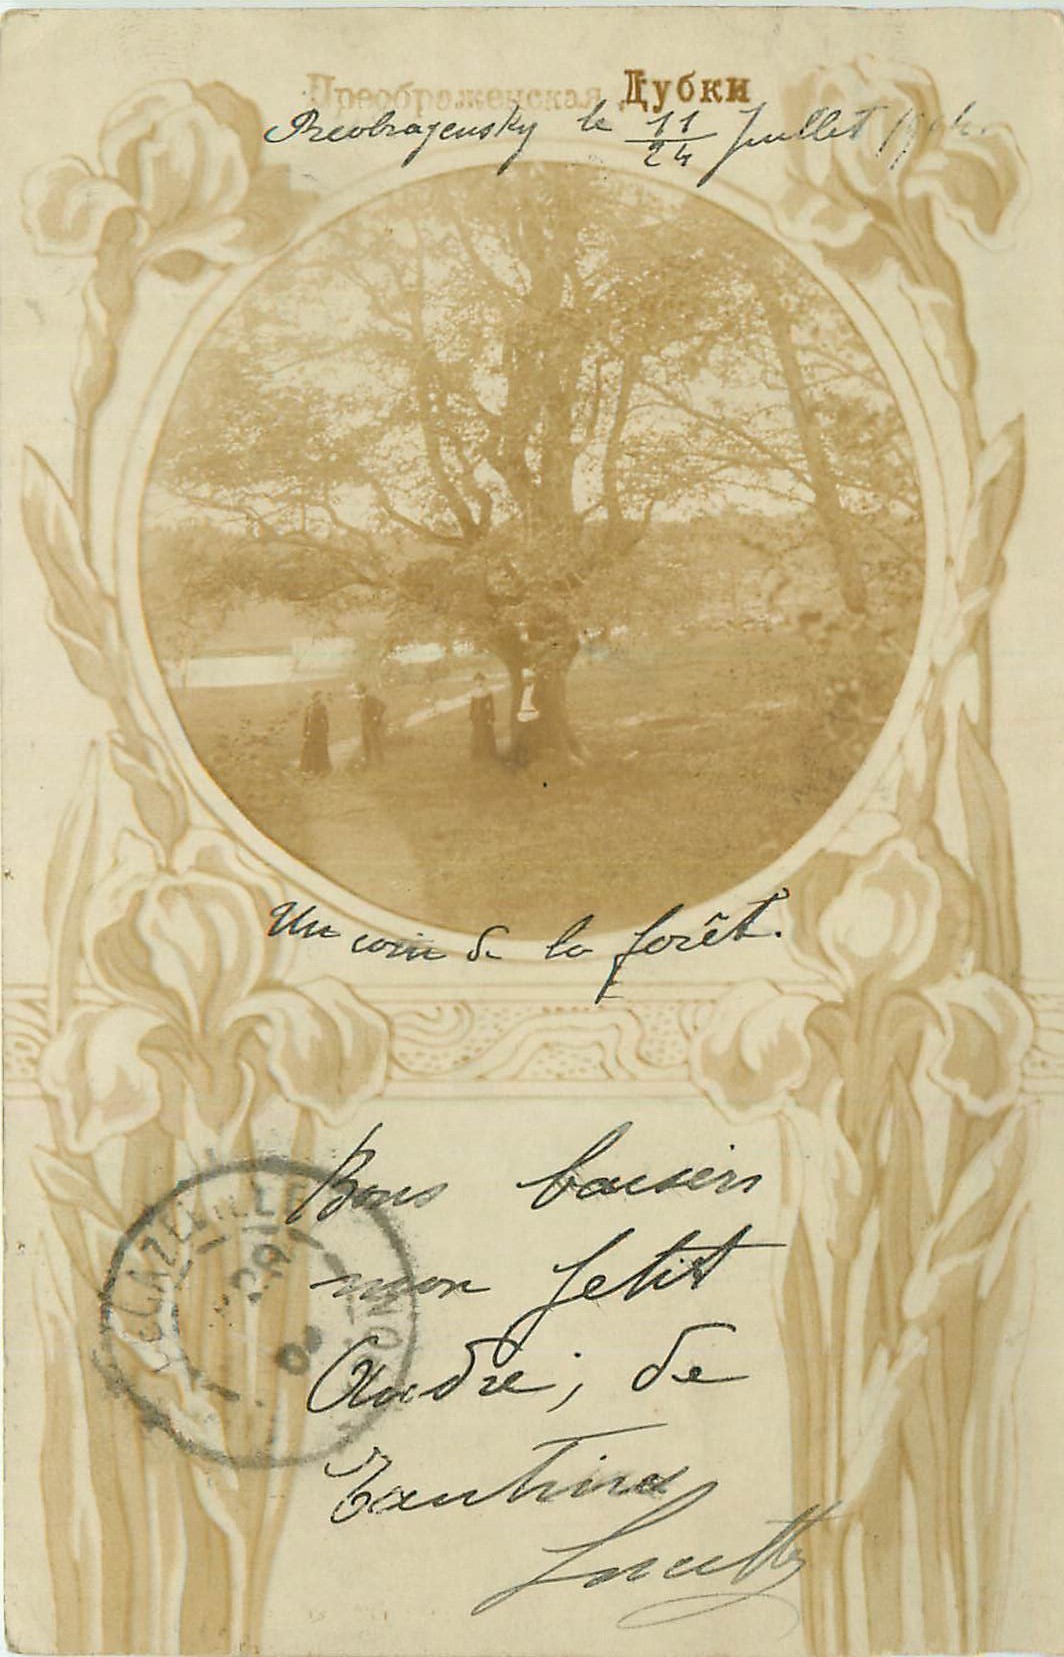 Преображенская Дубки
Preobrajensky le 11/24 Juillet
Un coin de la forêt.
Bons baisers
mon petit
André, de
Tantine
DECAZEVILLE